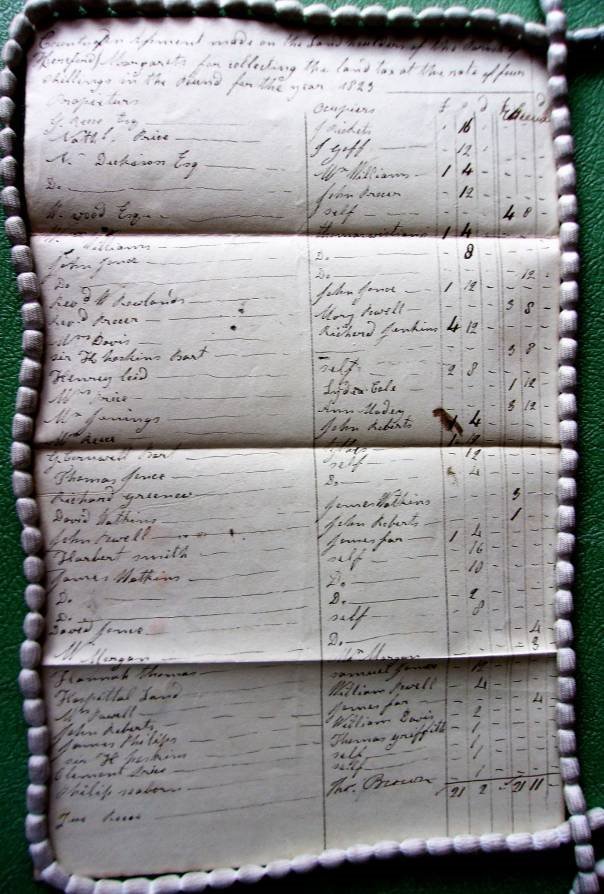 made on the Land holders of the
Hereford Margarets for collecting the land tax at the rate of four
shillings in the Pound for the year 1823
Propriters Occupiers £ s d £
G Reece Esq J Rickets 16
Nathl. Price J Goff 12
N. Dickinson Esq Mr Williams 1 4
Do. John Preece 12
W. Wood Esq self 4 8
Williams 1 4
John Jones Do. 8
Do. Do. 12
Revd W Rowlands John Jones 1 12
Revd Preece Mary Powell 3 8
Mrs Davis Richard Jenkins 4 12
sir H hoskins Bart 3 8
Henrey self 2 8
Mrs Price Lydia 1 12
Mr Jenings Ann 3 12
Mrs Reece John Roberts 4
G Cornewall Bart
Thomas Jones self 12
Richard Greenow Do. 4
David Watkins James Watkins 3
John Powell John Roberts 1
Harbert smith James far 1 4
James Watkins self 16
Do. Do. 10
Do. Do. 2
David Jones self 8
Mr Morgan Do. 4
Hannah Thomas Mr Morgan 3
Hospittal Land samuel Jones 12
Mr Powell William Powell 4
John Roberts James far 4
James Philips William Davis 2
sir H hoskins Thomas Griffith 1
Clement Price self 1
Philip seaborn self 1
Tho. Brown 1
£ 21 2 £ 21 11